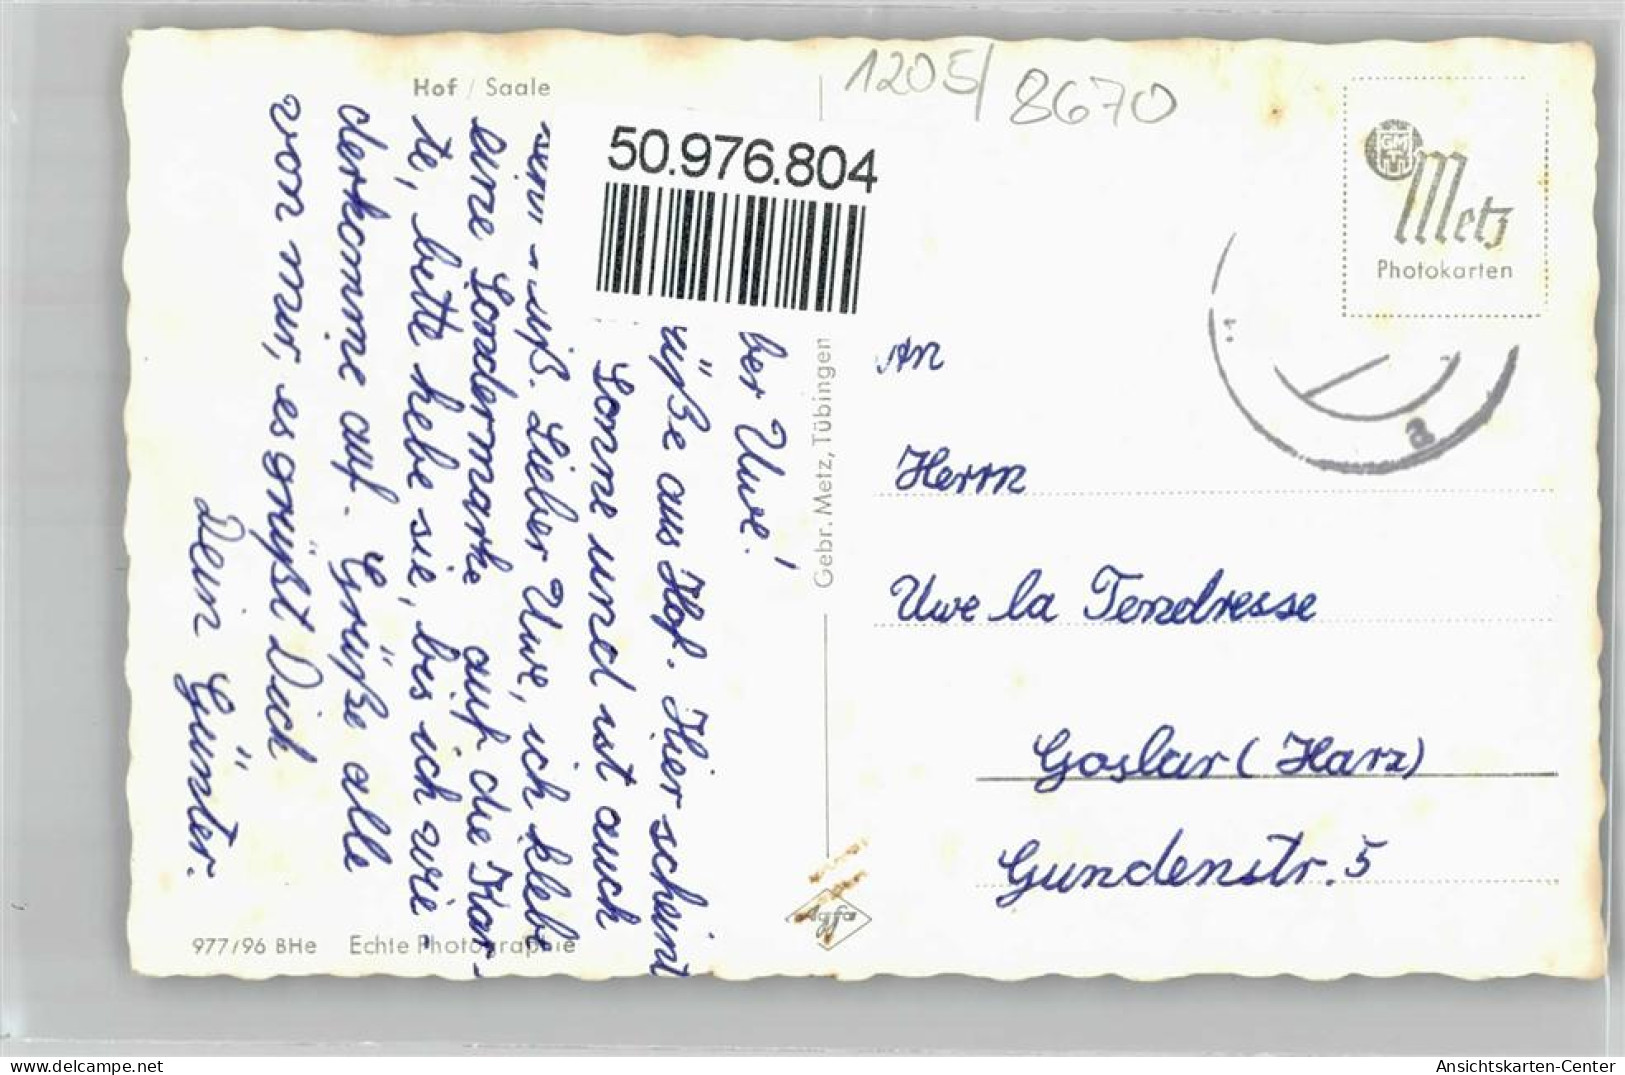 Hof / Saale
1205/
8670
50.976.804
Metz
Photokarten
ber Uwe!
üße aus Hof. Hier scheint
Sonne und ist auch
Lieber Uwe, ich klebe
eine Sondermarke auf die Kar-
te, bitte hebe sie, bis ich wie-
derkomme auf. Grüße alle
von mir, es grüßt Dich
Dein Günter.
Gebr. Metz, Tübingen
An
Herrn
Uwe la Tendresse
Goslar (Harz)
Gundenstr. 5
Agfa
977/96 BHe Echte Photographie
Ansichtskarten-Center